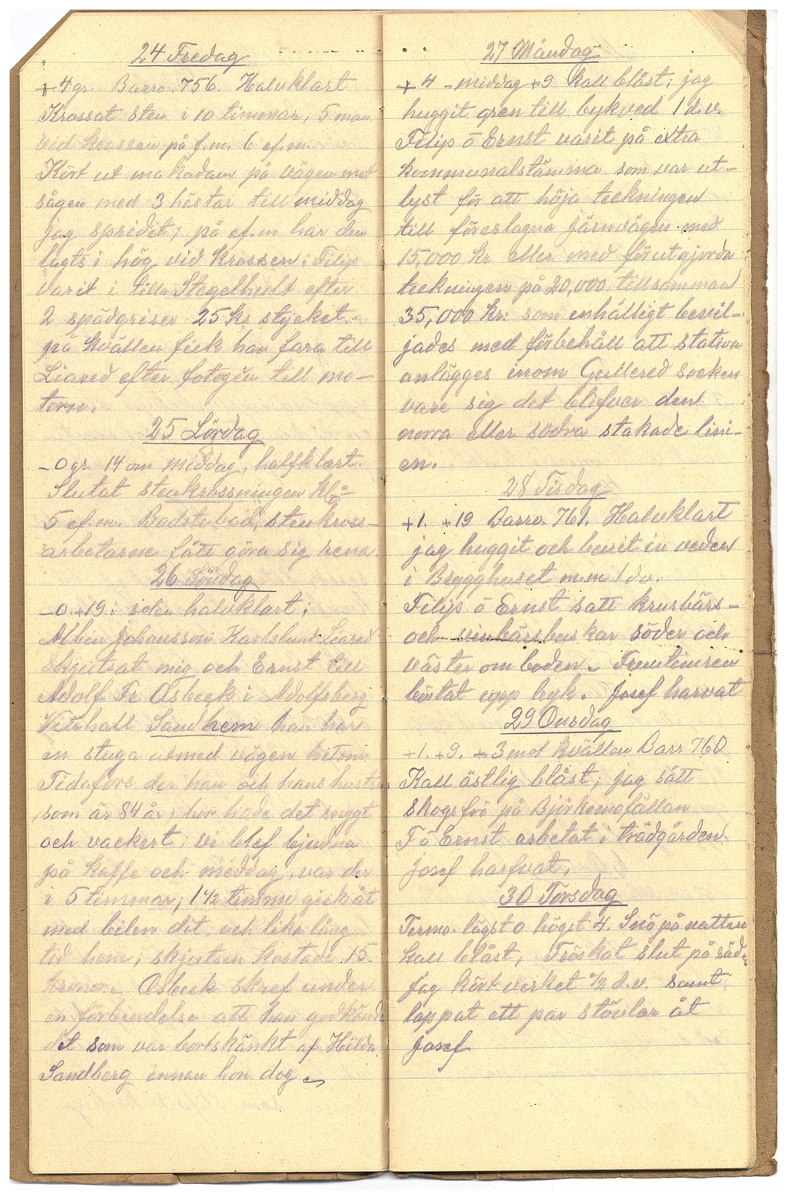 24 Fredag
+4 gr. Barro. 756. Halvklart
Krossat sten i 10 timmar, 5 man
vid krossen på f.m. 6 ef.m.
Kört ut makadam på vägen mot
sågen med 3 hästar till middag
jag spredit, på ef.m har den
lagts i hög vid krossen; Filip
varit i Lilla Stegelhult efter
2 spädgrisar 25 kr stycket.
på kvällen fick han fara till
Liared efter fotogén till mo-
torn.
25 Lördag
-0 gr. 14 om middag, halfklart.
Slutat stenkrossningen Kl.
5 ef.m. Badstubad, stenkross-
arbetarne fått göra sig rena
26 Söndag
-0. +19 i solen halvklart;
Albin Johansson Karlslund Liared
skjutsat mig och Ernst till
Adolf Fr. Osbeck i Adolfsberg
Vitahall Sandhem han har
en stuga utmed vägen
Tidafors der han och hans hustru
som är 84 år, bor hade det snyggt
och vackert, vi blef bjudna
på kaffe och middag, var der
i 5 timmar; 1 1/2 timme gick åt
med bilen dit, och lika lång
tid hem; skjutsen kostade 15.
kronor. Osbeck skref under
en förbindelse att han godkände
det som var bortskänkt af Hilda
Sandberg innan hon dog.
27 Måndag
+4 - middag +9 Kall blåst; jag
huggit gren till bykved 1 d.v.
Filip o Ernst varit på extra
kommunalstämma som var ut-
lyst för att höja teckningen
till föreslagna järnvägen med
15,000 kr eller med förutgjorda
teckningen på 20,000. tillsamman
35,000 kr: som enhälligt bevil-
jades med förbehåll att station
anlägges inom Gullered socken
vare sig det blifver den
norra eller södra stakade lini-
en.
28 Tisdag
+1. +19 Barro. 761. Halvklart
jag huggit och burit in veden
i Brygghuset m.m 1 dv.
Filip o Ernst satt krusbärs-
och vinbärsbuskar söder och
väster om boden.
börtat upp byk. Josef harvat
29 Onsdag
+1. +9. +3 mot kvällen Barr 760
Kall östlig blåst; jag sått
skogsfrö på Björkemofällan
F o Ernst arbetat i trädgården
josef harfvat.
30 Torsdag
Termo. lägst 0 högst 4. Snö på natten
Kall blåst, Tröskat slut på säd
Jag kört verket 1/2 d.v. samt
lappat ett par stövlar åt
Josef